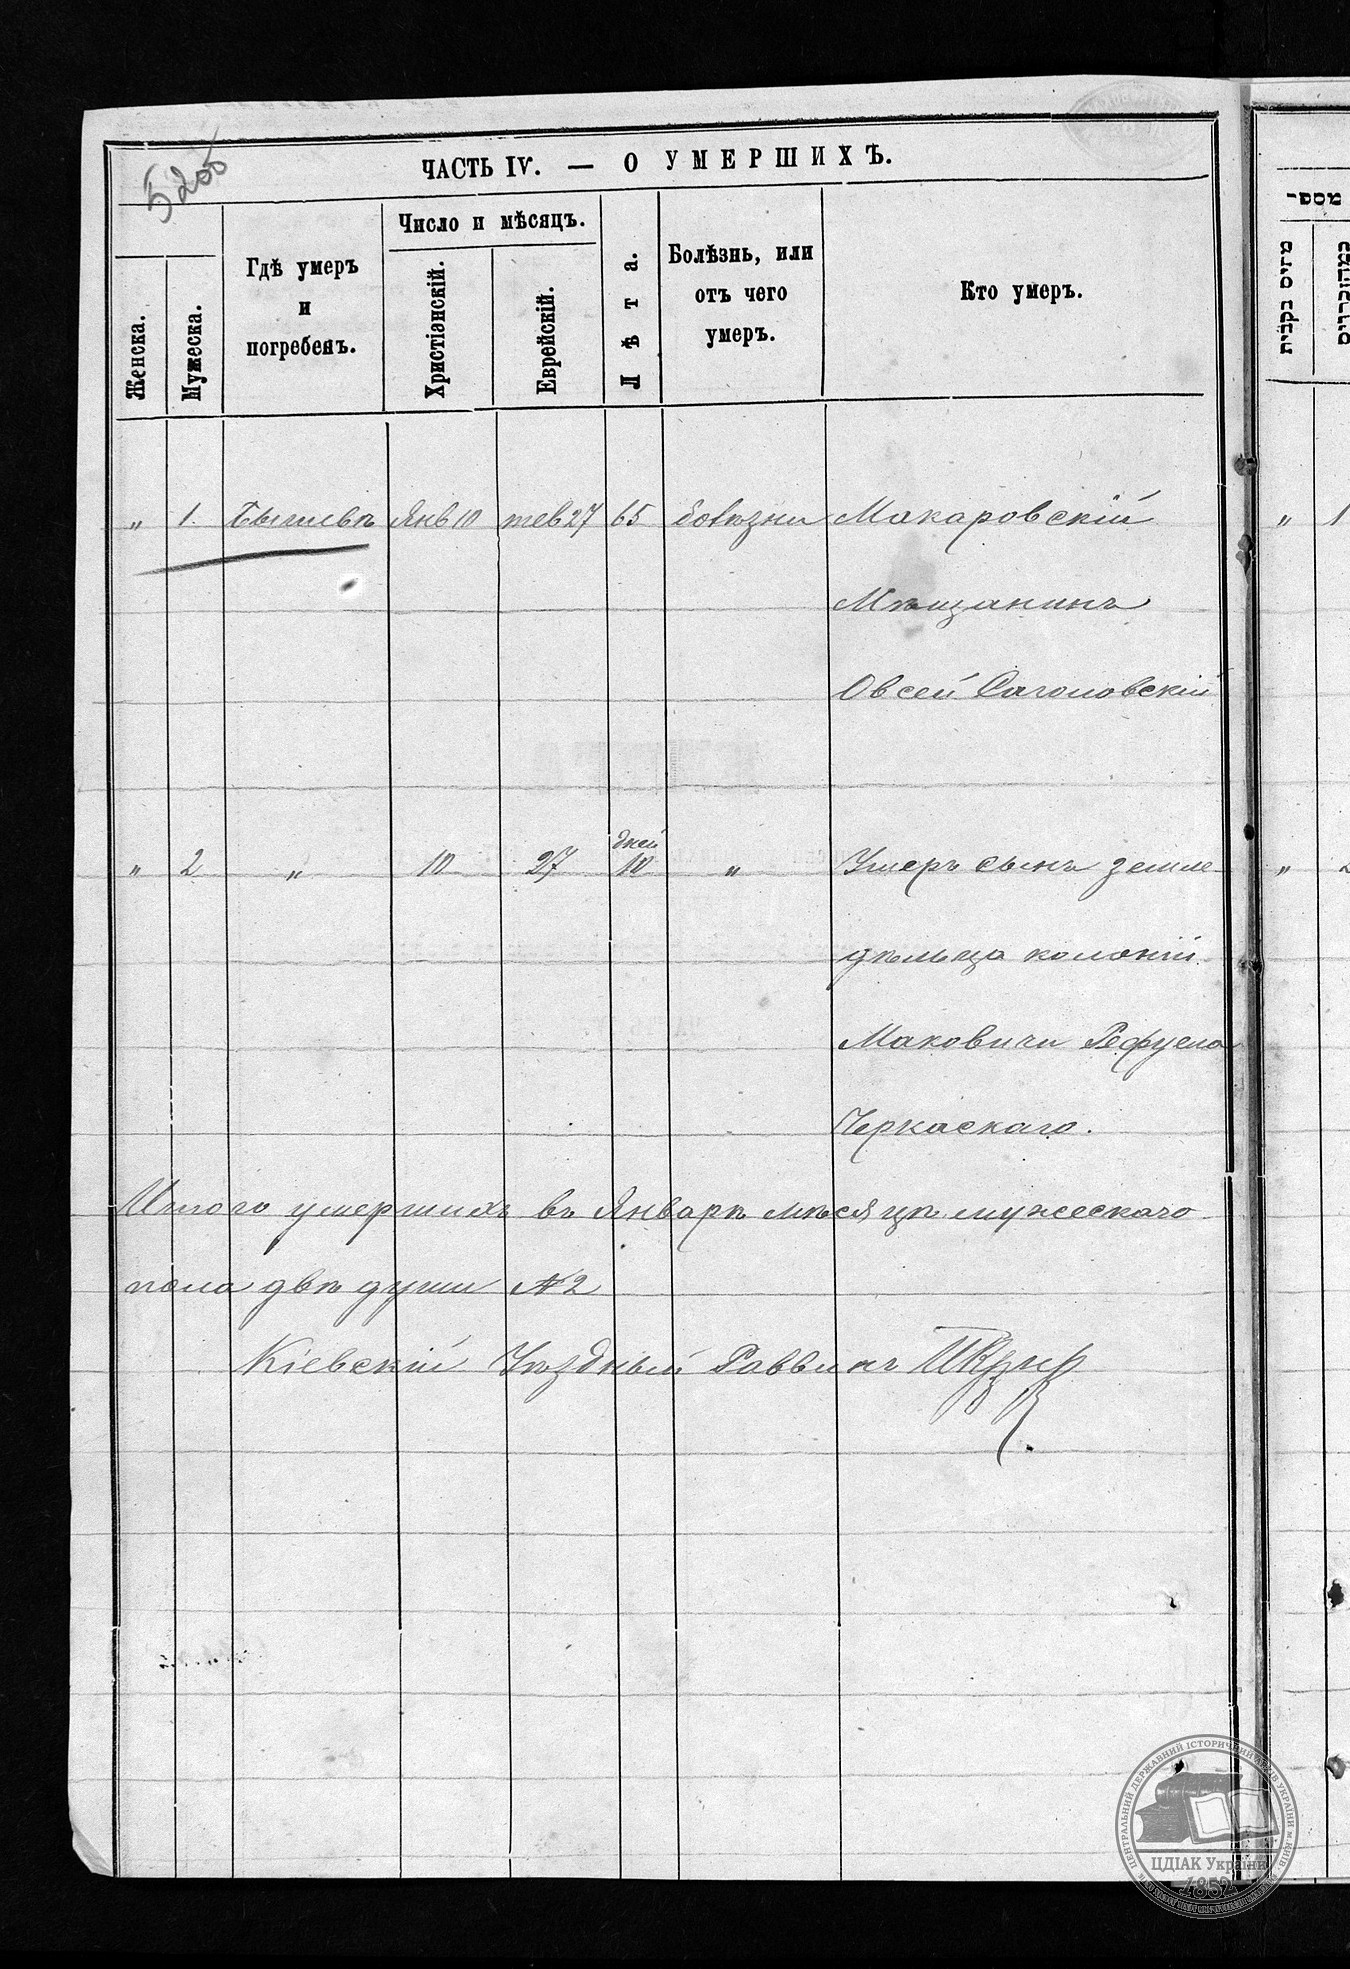 5200
ЧАСТЬ IV. — О УМЕРШИХЪ.
Женска.
Мужеска.
Гдѣ умеръ
и
погребенъ.
Число и мѣсяцъ.
Христіанскій.
Еврейскій.
Лѣта.
Болѣзнь, или
отъ чего
умеръ.
Кто умеръ.
מספר
מזיס נקבות
" 1. Бышевѣ Янв 10 тев 27 65 болѣзни Макаровскій
Мѣщанинъ
Овсей
дней
" 2 " 10 27 10 " Умеръ сынъ земле-
дѣльца колоніи
Маковичи Рефуела
Черкаскаго.
Итого умершихъ въ Январѣ мѣсяцѣ мужескаго
пола двѣ души № 2
Кіевскій Уѣздный Раввинъ
" 1
" 2
ЦЕНТРАЛЬНИЙ ДЕРЖАВНИЙ ІСТОРИЧНИЙ АРХІВ УКРАЇНИ м. КИЇВ
ЦДІАК України
1852